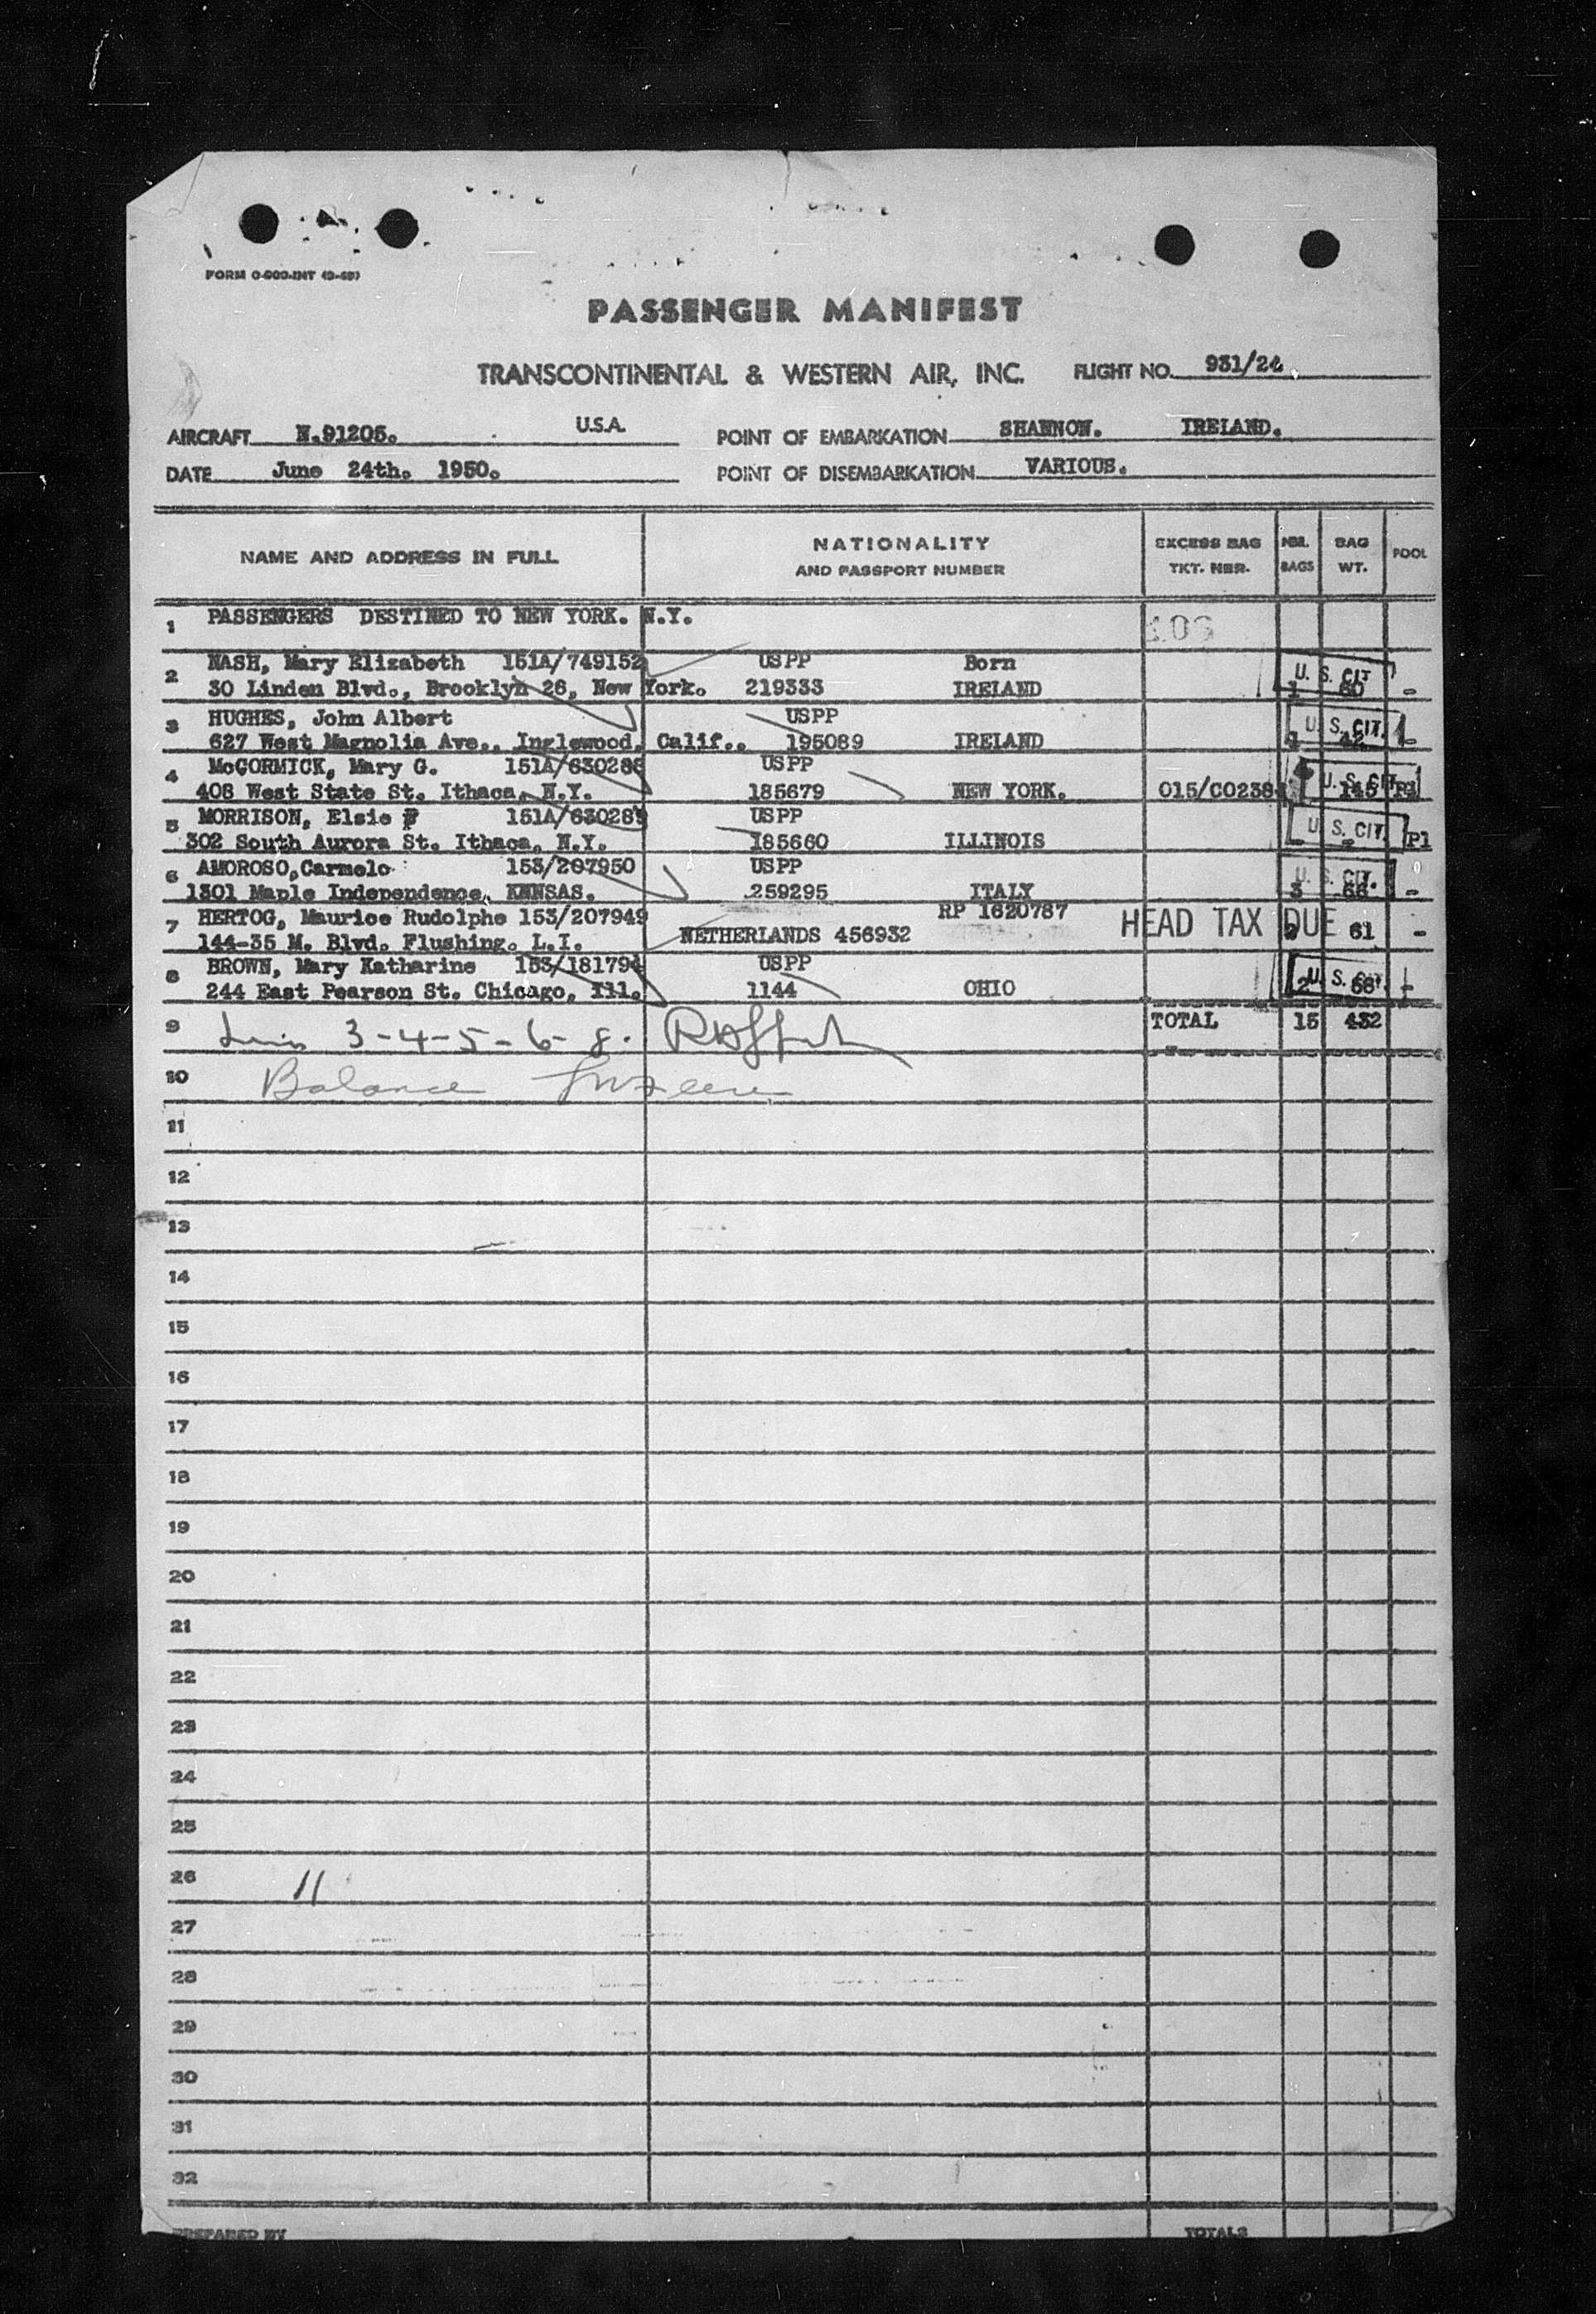 FORM O-900-INT (9-49)
PASSENGER MANIFEST
TRANSCONTINENTAL & WESTERN AIR, INC. FLIGHT NO. 931/24.
AIRCRAFT N.91205. U.S.A. POINT OF EMBARKATION SHANNON. IRELAND.
DATE June 24th. 1950. POINT OF DISEMBARKATION VARIOUS.
NAME AND ADDRESS IN FULL NATIONALITY AND PASSPORT NUMBER EXCESS BAG TKT. NBR. NBR. BAGS BAG WT. POOL
1 PASSENGERS DESTINED TO NEW YORK. N.Y.
2 NASH, Mary Elizabeth 151A/749152 USPP Born U. S. CIT
30 Linden Blvd., Brooklyn 26, New York. 219333 IRELAND 1 60 -
3 HUGHES, John Albert USPP U. S. CIT.
627 West Magnolia Ave., Inglewood, Calif.. 195089 IRELAND 42 -
4 McCORMICK, Mary G. 151A/630286 USPP U. S. CIT
408 West State St. Ithaca, N.Y. 185679 NEW YORK. 015/C0238 145
5 MORRISON, Elsie F 151A/630289 USPP U. S. CIT.
302 South Aurora St. Ithaca, N.Y. 185660 ILLINOIS - - P1
6 AMOROSO,Carmelo 153/207950 USPP U. S. CIT.
1301 Maple Independence, KNNSAS. 259295 ITALY 3 66 -
7 HERTOG, Maurice Rudolphe 153/207949 RP 1620787 HEAD TAX DUE
144-35 M. Blvd. Flushing. L.I. NETHERLANDS 456932 61 -
8 BROWN, Mary Katharine 153/181794 USPP U. S.
244 East Pearson St. Chicago, Ill. 1144 OHIO 2 -
9 3-4-5-6-8. TOTAL 15 432
10 Balance
11
12
13
14
15
16
17
18
19
20
21
22
23
24
25
26 11
27
28
29
30
31
32
PREPARED BY TOTALS